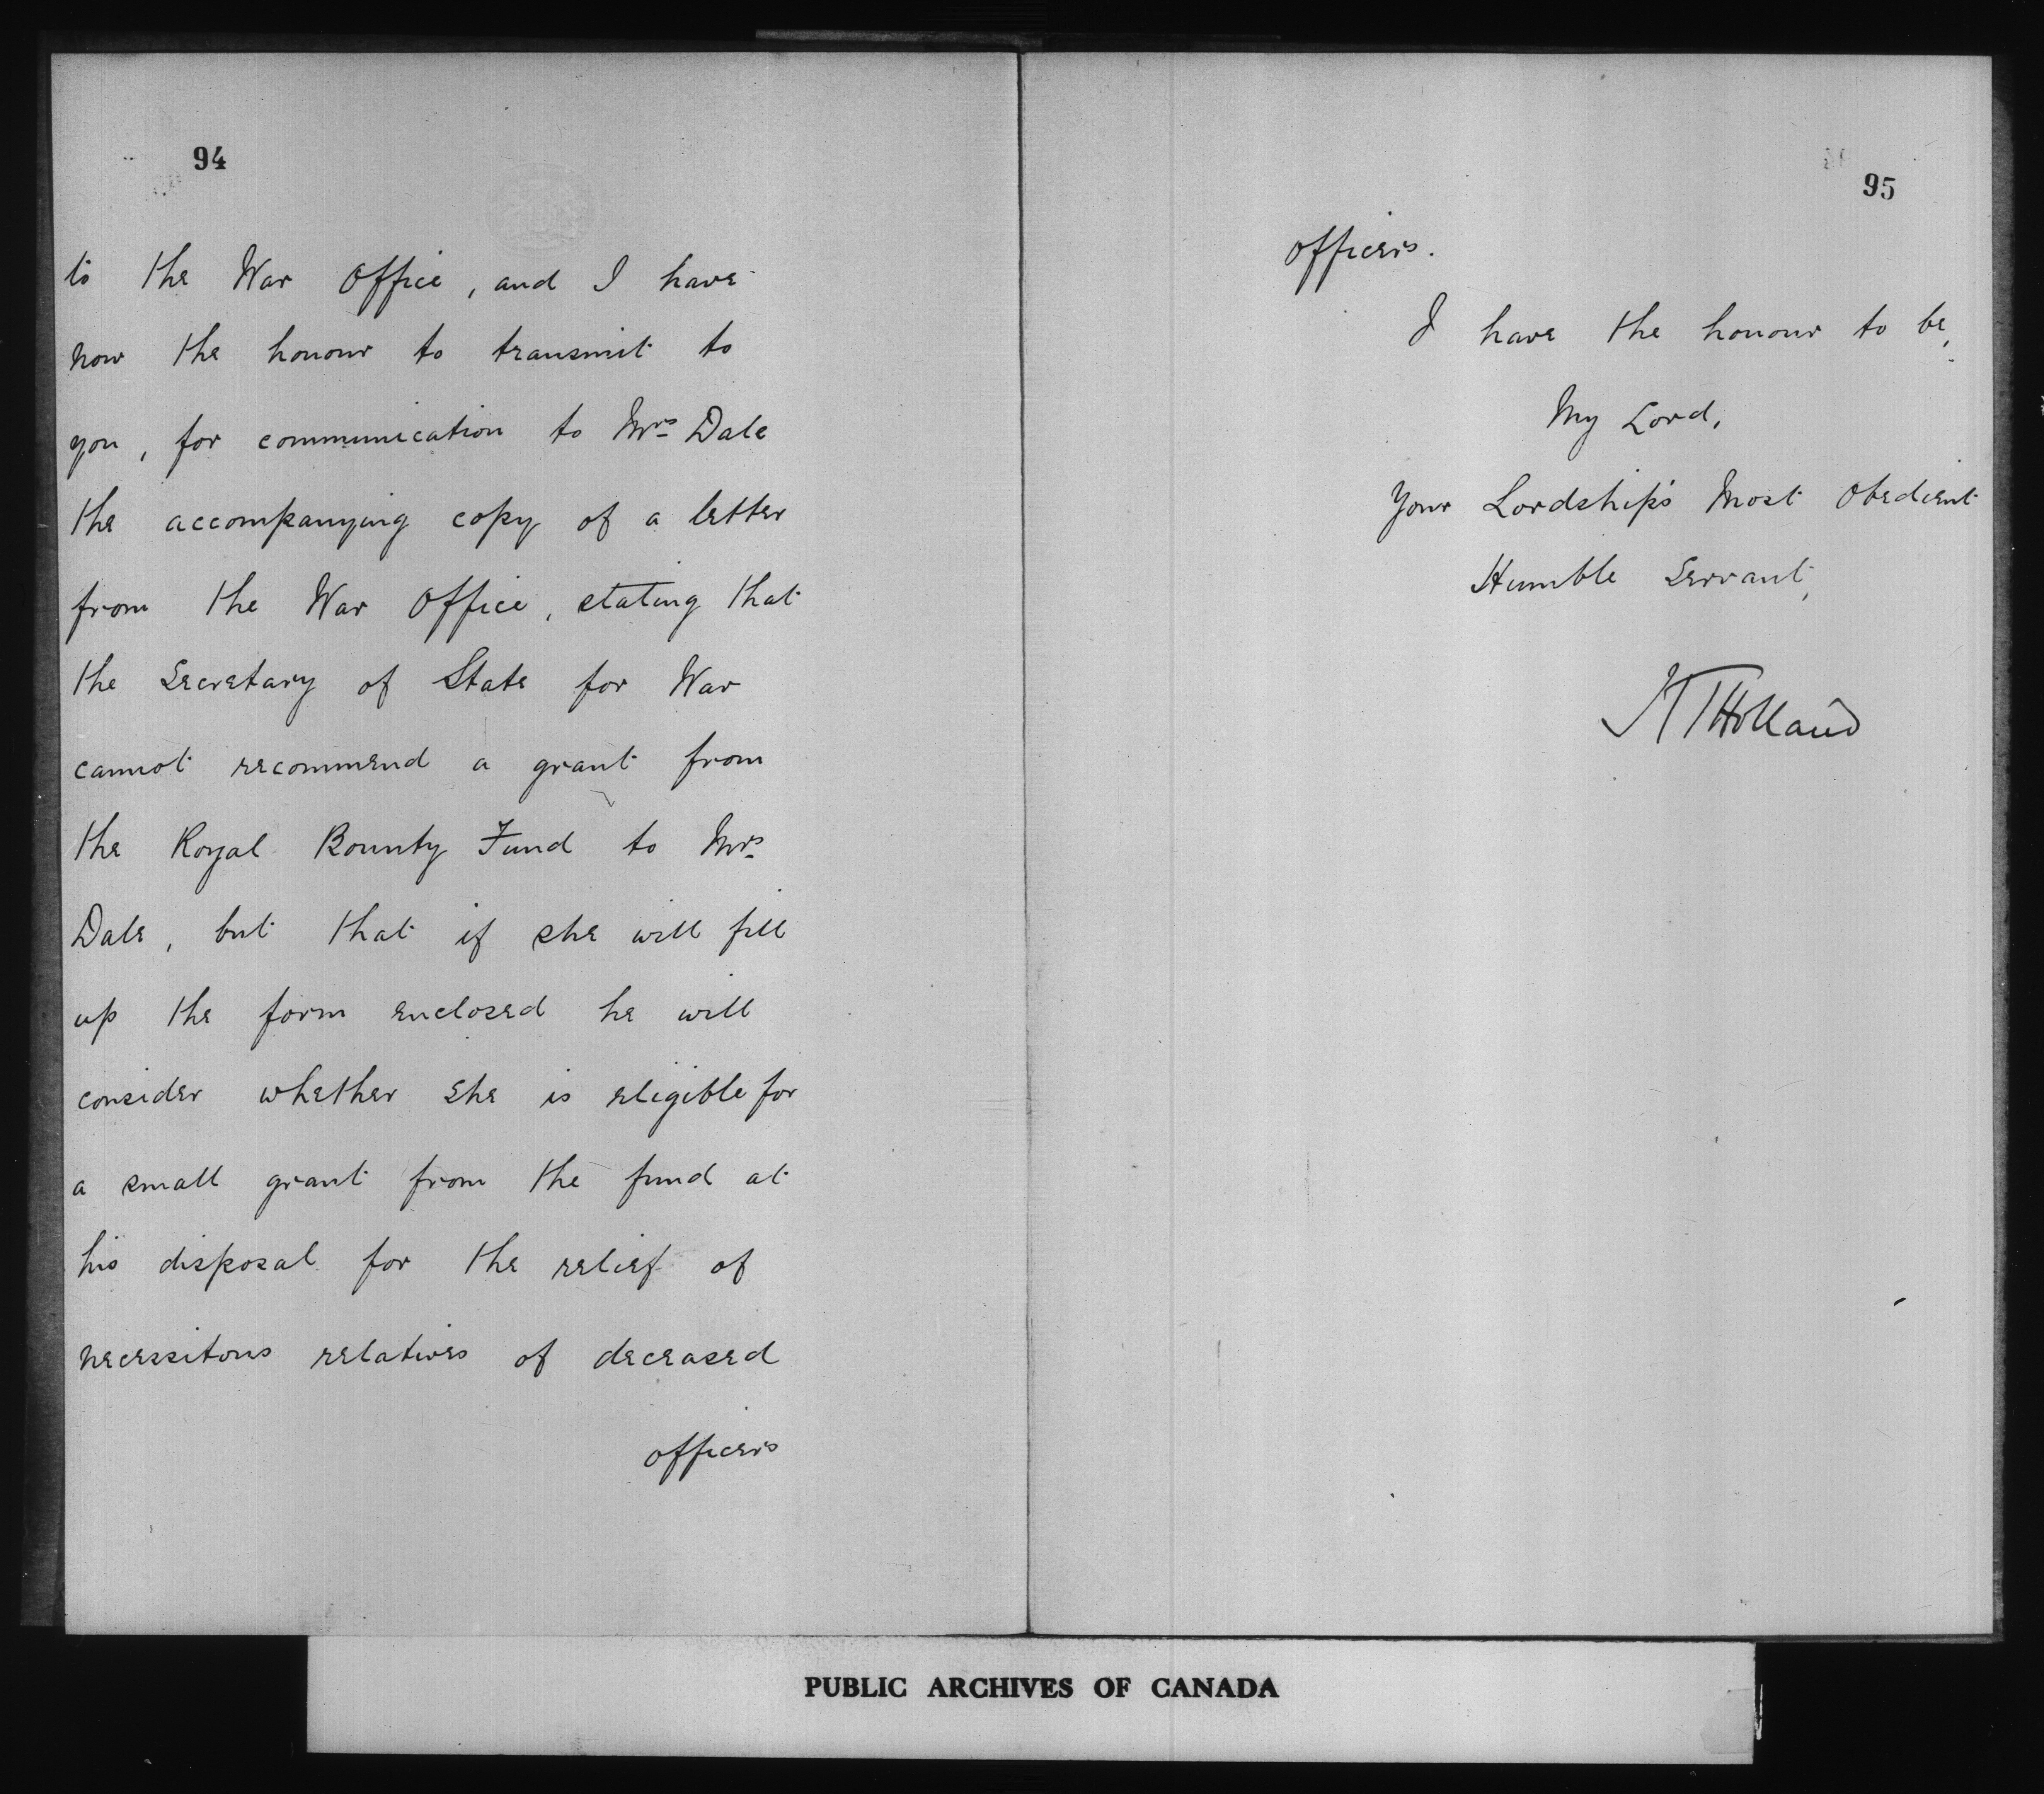 94
to the War Office, and I have
now the honour to transmit to
you, for communication to Mrs Dale
the accompanying copy of a letter
from the War Office, stating that
the Secretary of State for War
cannot recommend a grant from
the Royal Bounty Fund to Mrs
Dale, but that if she will fill
up the form enclosed he will
consider whether she is eligible for
a small grant from the fund at
his disposal for the relief of
necessitous relatives of deceased
officers
95
officers.
I have the honour to be,
My Lord,
Your Lordship's Most Obedient
Humble Servant,
HTHolland
PUBLIC ARCHIVES OF CANADA